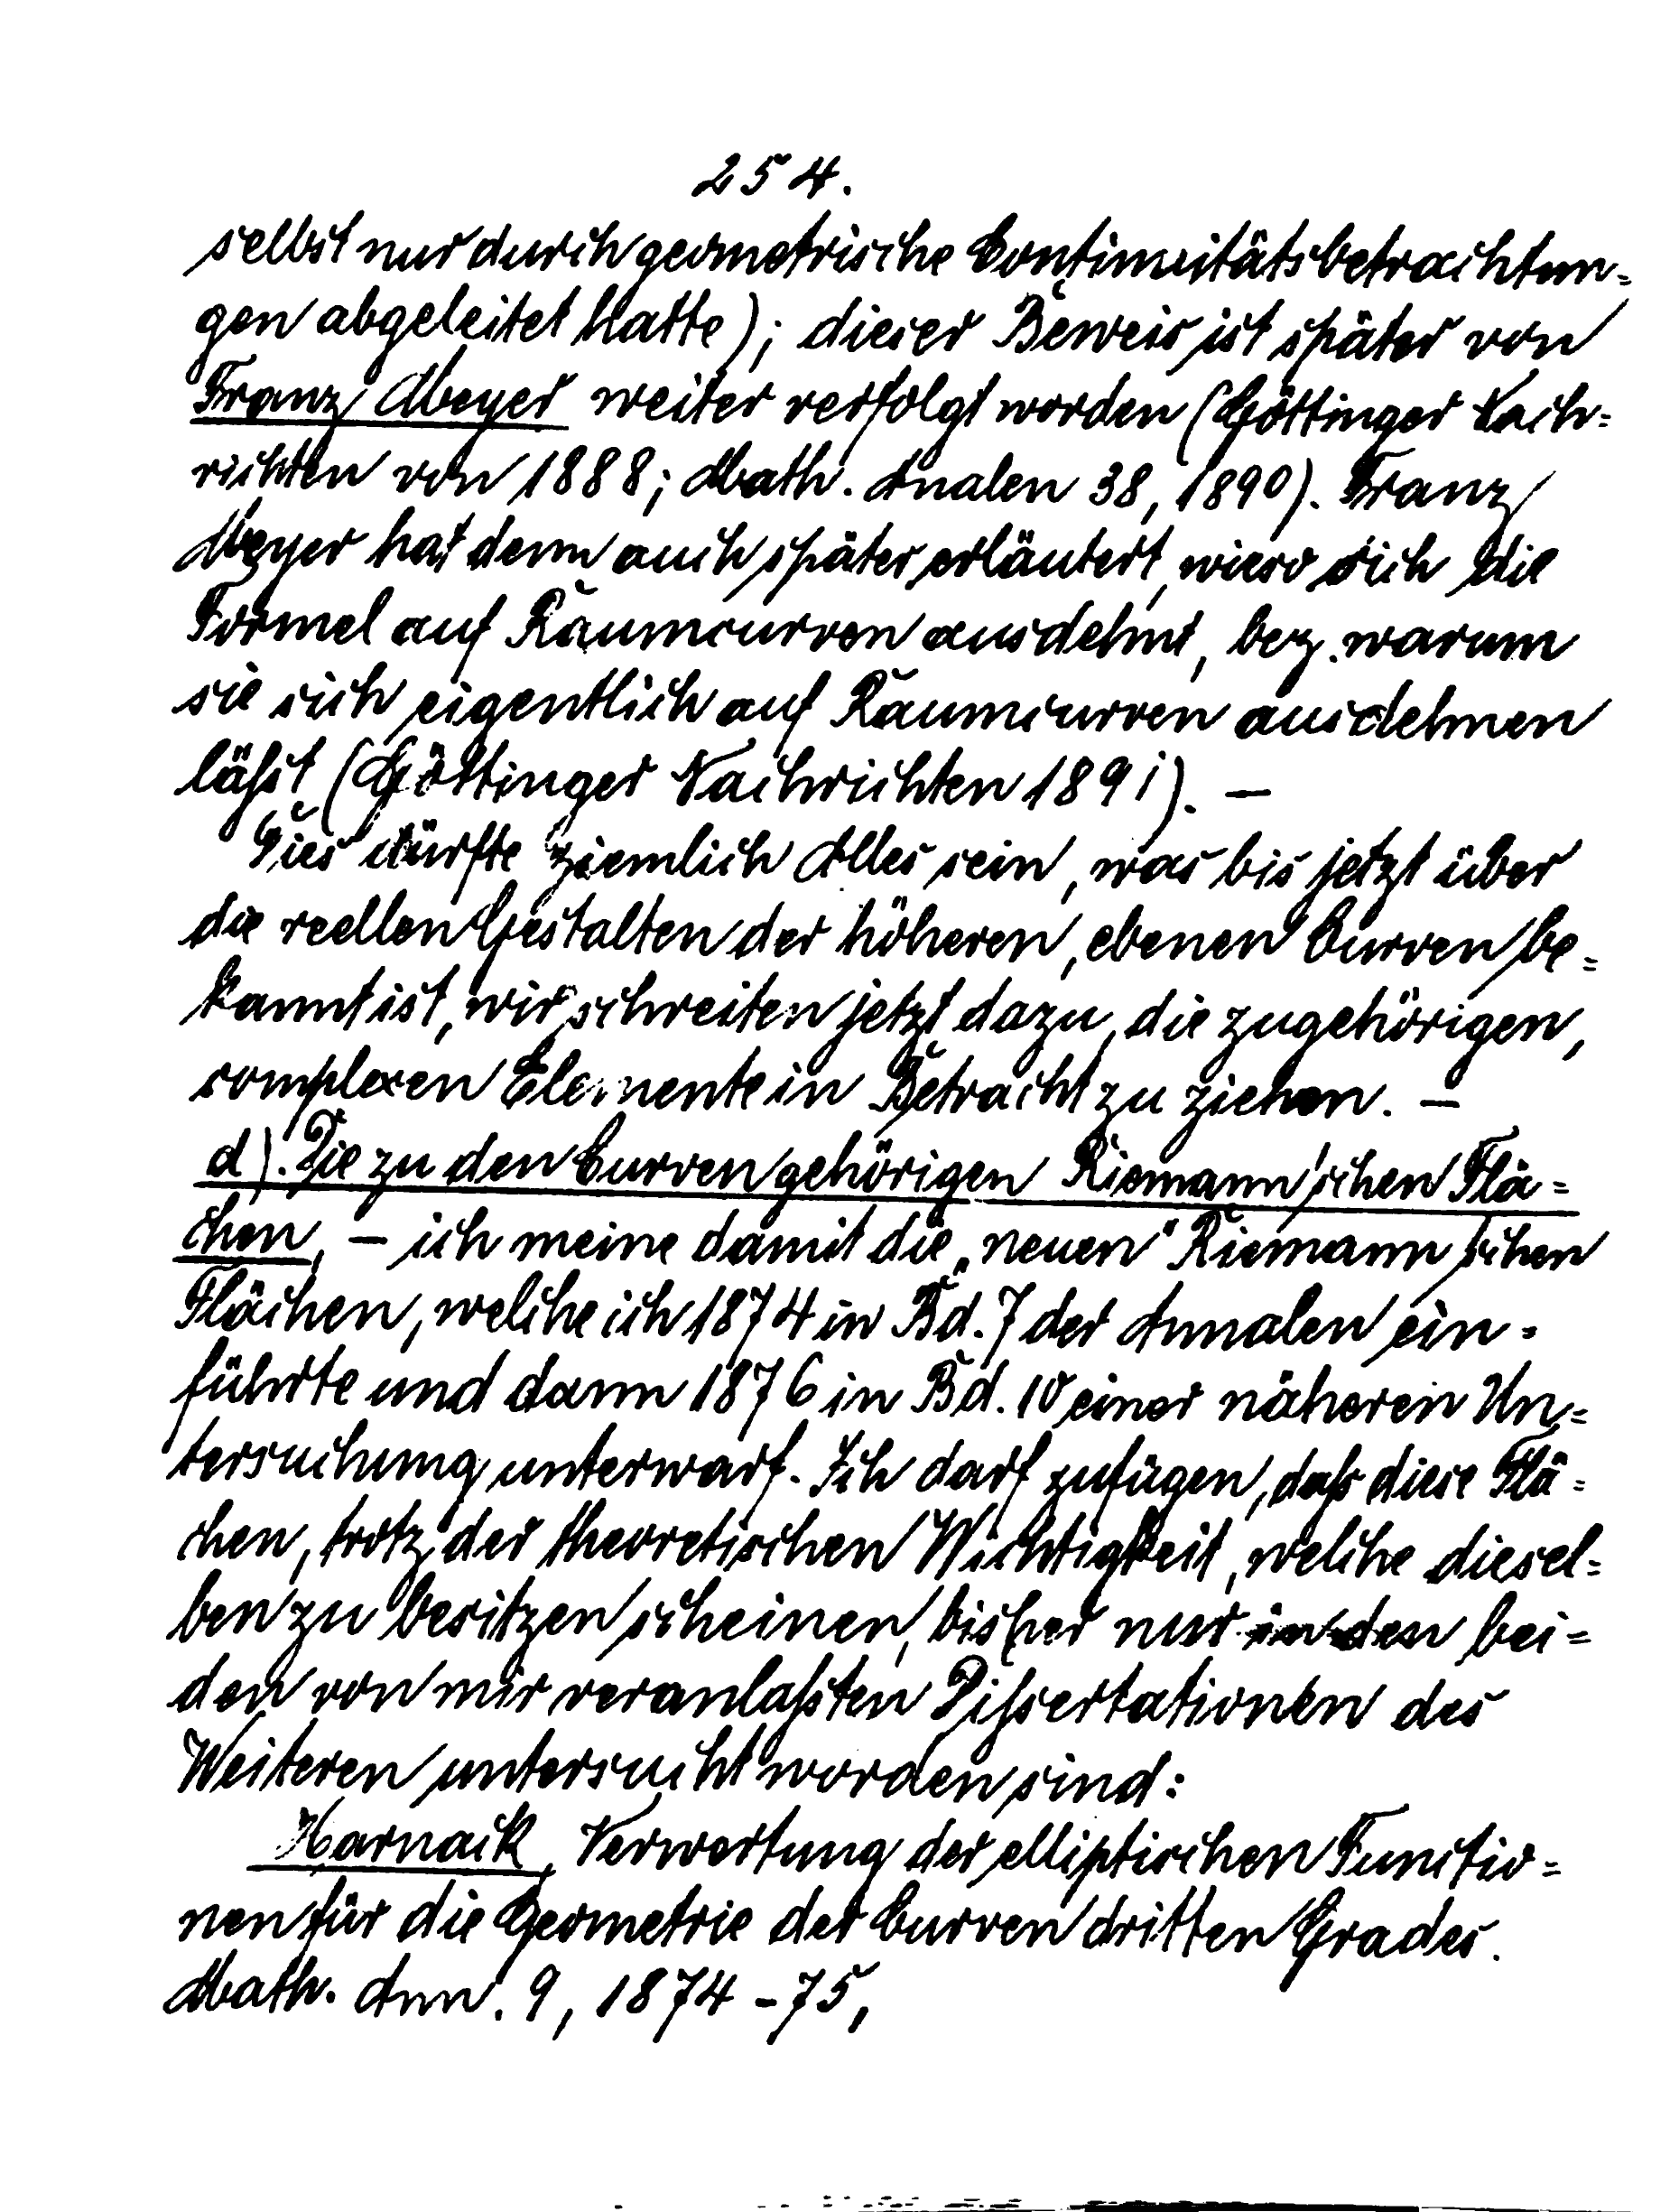 254.
selbst nur durch geometrische Continuitätsbetrachtun=
gen abgeleitet hatte); dieser Beweis ist später von
Franz Meyer weiter verfolgt worden (Göttinger Nach=
richten von 1888; Math. Analen 38, 1890). Franz
Meyer hat denn auch später erläutert, wieso sich die
Formel auf Raumcurven ausdehnt, bez. warum
sie sich eigentlich auf Raumcurven ausdehnen
läßt (Göttinger Nachrichten 1891). —
Dies dürfte ziemlich Alles sein, was bis jetzt über
die reellen Gestalten der höheren, ebenen Curven be=
kannt ist, wir schreiten jetzt dazu, die zugehörigen,
complexen Elemente in Betracht zu ziehen. —
d). Die zu den Curven gehörigen Riemann'schen Flä=
chen, — ich meine damit die „neuen" Riemann'schen
Flächen, welche ich 1874 in Bd. 7 der Annalen ein=
führte und dann 1876 in Bd. 10 einer näheren Un=
tersuchung unterwarf. Ich darf zufügen, daß diese Flä=
chen, trotz der theoretischen Wichtigkeit, welche diesel=
ben zu besitzen scheinen, bisher nur in den bei=
den von mir veranlaßten Dißertationen des
Weiteren untersucht worden sind:
Harnack, Verwertung der elliptischen Functio=
nen für die Geometrie der Curven dritten Grades.
Math. Ann. 9, 1874-75,